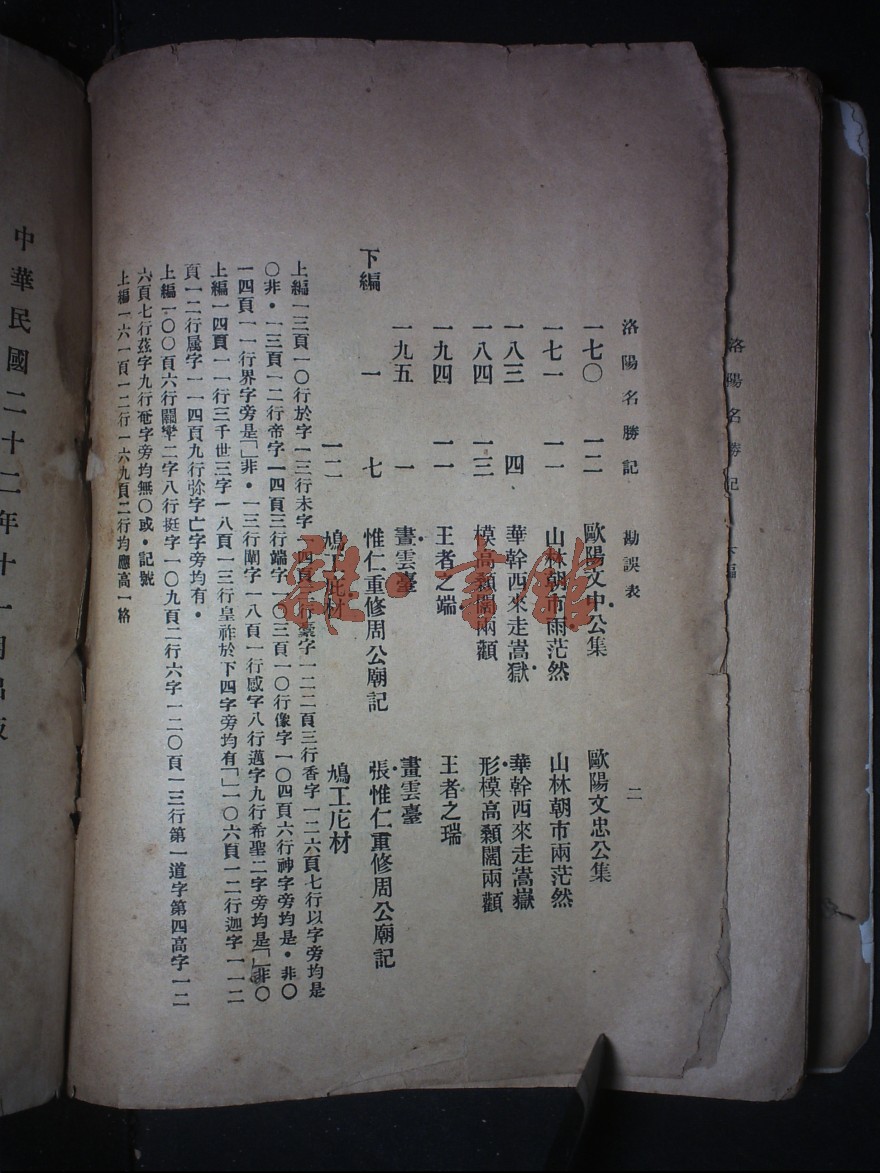 洛陽名勝記　勘誤表　二
一七〇　一二　歐陽文中公集　歐陽文忠公集
一七一　一一　山林朝市雨茫然　山林朝市兩茫然
一八三　四　華幹西來走嵩獄　華幹西來走嵩嶽
一八四　一三　模高顙闊兩顴　形模高顙闊兩顴
一九四　一一　王者之端　王者之瑞
一九五　一　畫雲臺　畫雲臺
下編　一　七　惟仁重修周公廟記　張惟仁重修周公廟記
一二　鳩工庀材　鳩工庀材
上編一三頁一〇行於字一三行未字一四頁一行豪字一二二頁三行香字一二六頁七行以字旁均是
〇非・一三頁一二行帝字一四頁三行端字一〇三頁一〇行像字一〇四頁六行神字旁均是・非〇
一四頁一一行界字旁是「」非・一三行闡字一八頁一行感字八行邁字九行希聖二字旁均是「」非〇
上編一四頁一一行三千世三字一八頁一三行皇祚於下四字旁均有「」一〇六頁一二行迦字一一二
頁一二行属字一一四頁九行弥字亡字旁均有・
上編一〇〇頁六行二字八行挺字一〇九頁二行六字一二〇頁一三行第一道字第四高字一二
六頁七行茲字九行奄字旁均無〇或・記號
上編一六一頁一二行一六九頁二行均應高一格
中華民國二十二年十一月出版
洛陽名勝記　下編
雜·書館